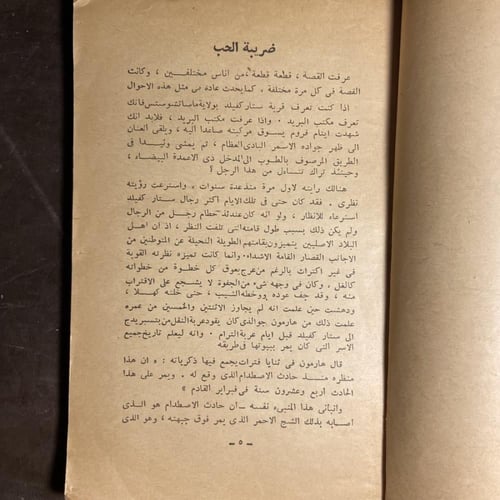 ضريبة الحب
عرفت القصة ، قطعة قطعة ، من أناس مختلفين ، وكانت
القصة فى كل مرة مختلفة . كما يحدث عاده فى مثل هذه الاحوال
اذا كنت تعرف قرية ستاركفيلد بولاية ماساتشوستس فانك
تعرف مكتب البريد . واذا عرفت مكتب البريد ، فلابد انك
شهدت ايثام فروم يسوق مركبته صاعدا اليه ، ويلقى العنان
الى ظهر جواده الاسمر البادى العظام ، ثم يمشى وئيدا فى
الطريق المرصوف بالطوب الى المدخل ذى الاعمدة البيضاء ،
وحينئذ تراك تتساءل من هذا الرجل ؟
هنالك رايته لاول مرة منذ عدة سنوات ، واسترعت رؤيته
نظرى . فقد كان حتى فى تلك الايام اكثر رجال ستاركفيلد
استرعاء للانظار ، ولو انه كان عندئذ حطام رجل من الرجال
ولم يكن ذلك بسبب طول قامته التى تلفت النظر ، اذ ان اهل
البلاد الاصليين يتميزون بقامتهم الطويلة النحيلة عن المتوطنين من
الاجانب القصار القامة الاشداء . وانما كانت تميزه نظرته القوية
فى غير اكتراث بالرغم من عرج يعوق كل خطوة من خطواته
كالغل . وكان فى وجهه شىء من الجفوة لا يشجع على الاقتراب
منه ، وقد جف عوده ووخطه الشيب ، حتى خلته كهلا ،
ودهشت حين علمت انه لم يجاوز الاثنتين والخمسين من عمره
علمت ذلك من هارمون جو الذى كان يقود عربة النقل من بتسبريدج
الى ستاركفيلد قبل ايام عربة الترام . وانه ليعلم تاريخ جميع
الاسر التى كان يمر ببيوتها فى طريقه
قال هارمون فى ثنايا فترات يجمع فيها ذكرياته : « ان هذا
منظره منذ حادث الاصطدام الذى وقع له . ويمر على هذا
الحادث اربع وعشرون سنة فى فبراير القادم »
وانبائى هذا المنبىء نفسه – ان حادث الاصطدام هو الذى
اصابه بذلك الشج الاحمر الذى يمر فوق جبهته ، وهو الذى
– ٥ –